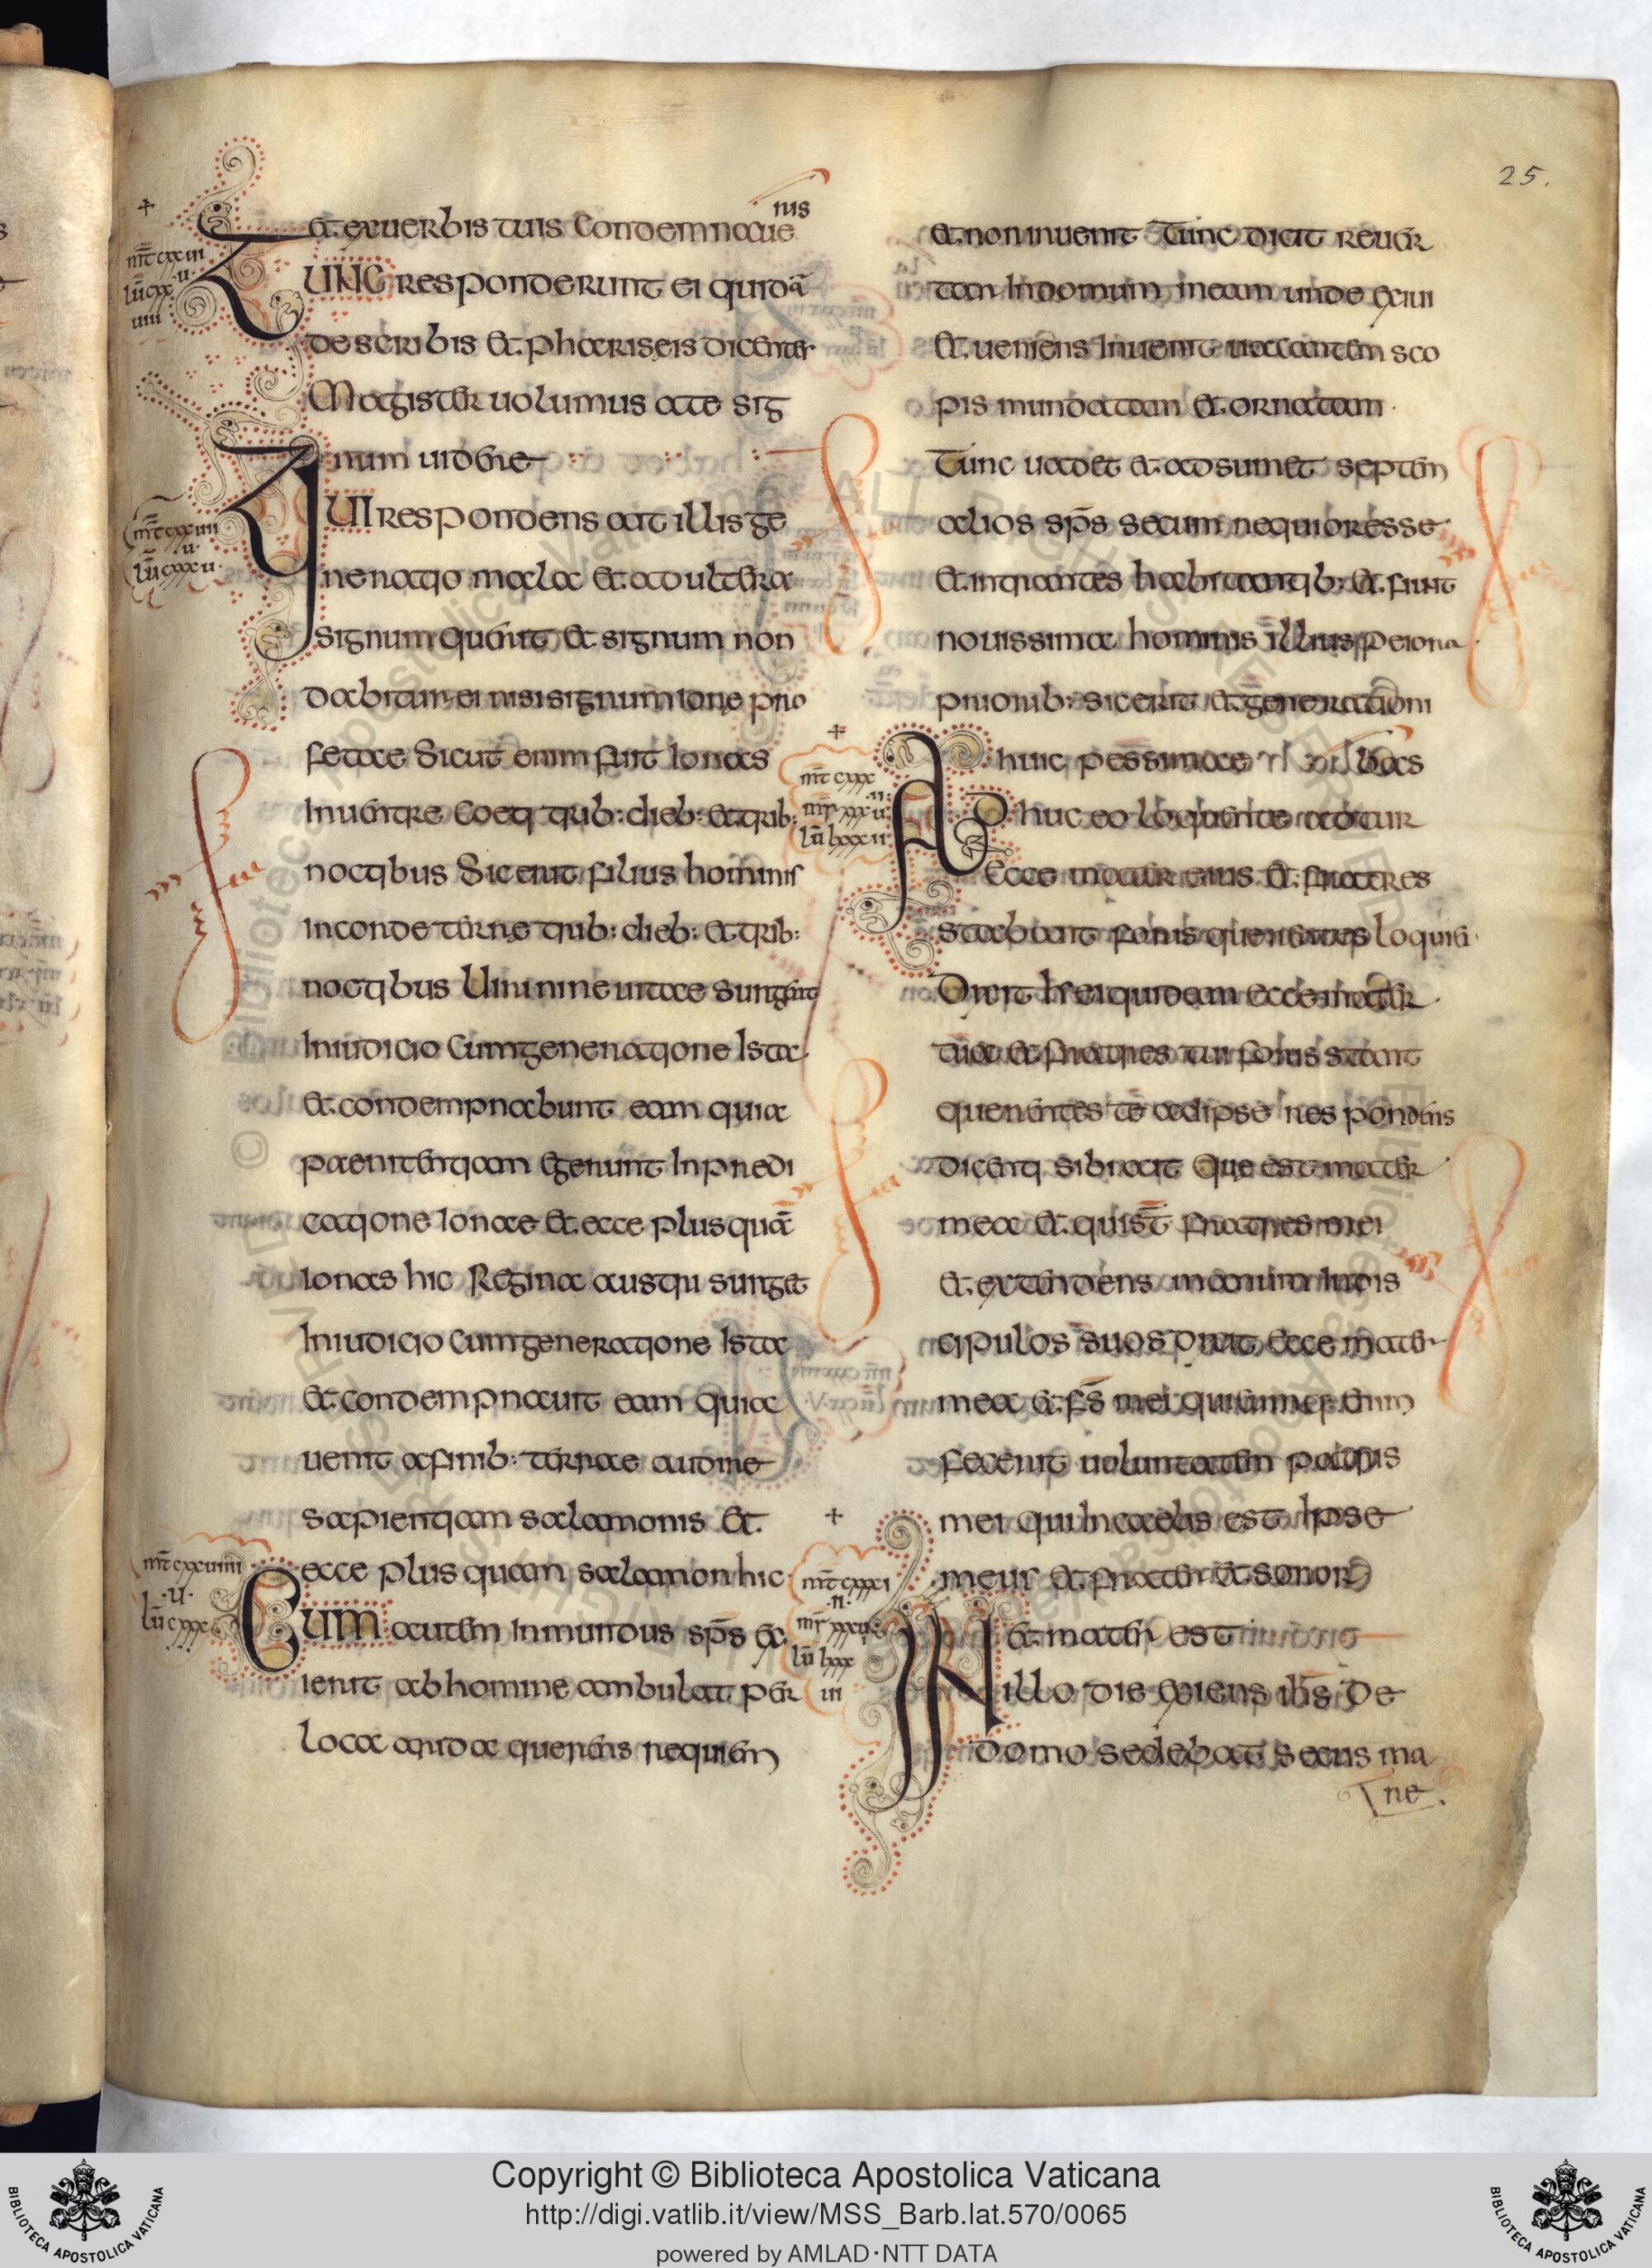 25.
nis
et. ex uerbis tuis Condemnaue
TUNC responderunt ei quidā
de scribis et. phariseis dicenter
Magister uolumus ate sig
num uidere
QUI respondens ait illis ge
neratio mala et. adultera
signum querit et signum non
dabitur ei nisi signum ione pro
fetae Sicut enim fuit ionas
In uentre Coeti trib: dieb: et. trib:
noctibus Sic erit filius hominis
in corde terre trib: dieb: et. trib:
noctibus Uiri nineuitae surgent
In iudicio Cum generatione Ista
et. condempnabunt eam quia
paenitentiam egerunt In predi
catione Ionae et. ecce plus quā
ionas hic Regina austri surget
In iudicio cum generatione Ista
et. condempnauit eam quia
uenit afinib: terrae audire
sapientiam salamonis et.
ecce plus quam salamon hic
CUM autem Inmundus sp̄s ex
ierit ab homine ambulat per
loca arida querens requiem
et. non inuenit Tunc dicit reuer
tar In domum meam unde exiui
et. ueniens Inuenit uacantem sco
pis mundatam et. ornatam
Tunc uadet et. adsumet septem
alios sp̄s secum nequiores se
et. intrantes habitant ib: et. fiunt
nouissima hominis illius peiora
priorib: sic erit et. generationi
huic pessimae
ADhuc eo loquente ad tur
Ecce mater eius et. fratres
stabant foris querentes loqui ei
Dixit hr ei quidam ecce mater
tua et. fratres tui foris stant
querentes te at ipse respondens
dicenti sibi ait Que est mater
mea et. qui sт̄ fratres mei
et. extendens manum In dis
cipulos suos Dixit ecce mater
mea et. fr̄s mei quicumque enim
fecerit uoluntatem patris
mei qui In caelis est Ipse
meus et. frater et. soror
et. mater est
IN illo die exiens ih̄s De
domo sedebat secus ma
re.
mт̄ cxxuiii
·u·
lū cxxx
mт̄ cxxx
·ii·
mr̄ xxxu
lū lxxxii
mт̄ cxxxi
·ii·
mr̄ xxxui
lū lxxx
iii
© Biblioteca Apostolica Vaticana ALL RIGHTS RESERVED
BIBLIOTECA APOSTOLICA VATICANA
Copyright © Biblioteca Apostolica Vaticana
http://digi.vatlib.it/view/MSS_Barb.lat.570/0065
powered by AMLAD·NTT DATA
BIBLIOTECA APOSTOLICA VATICANA